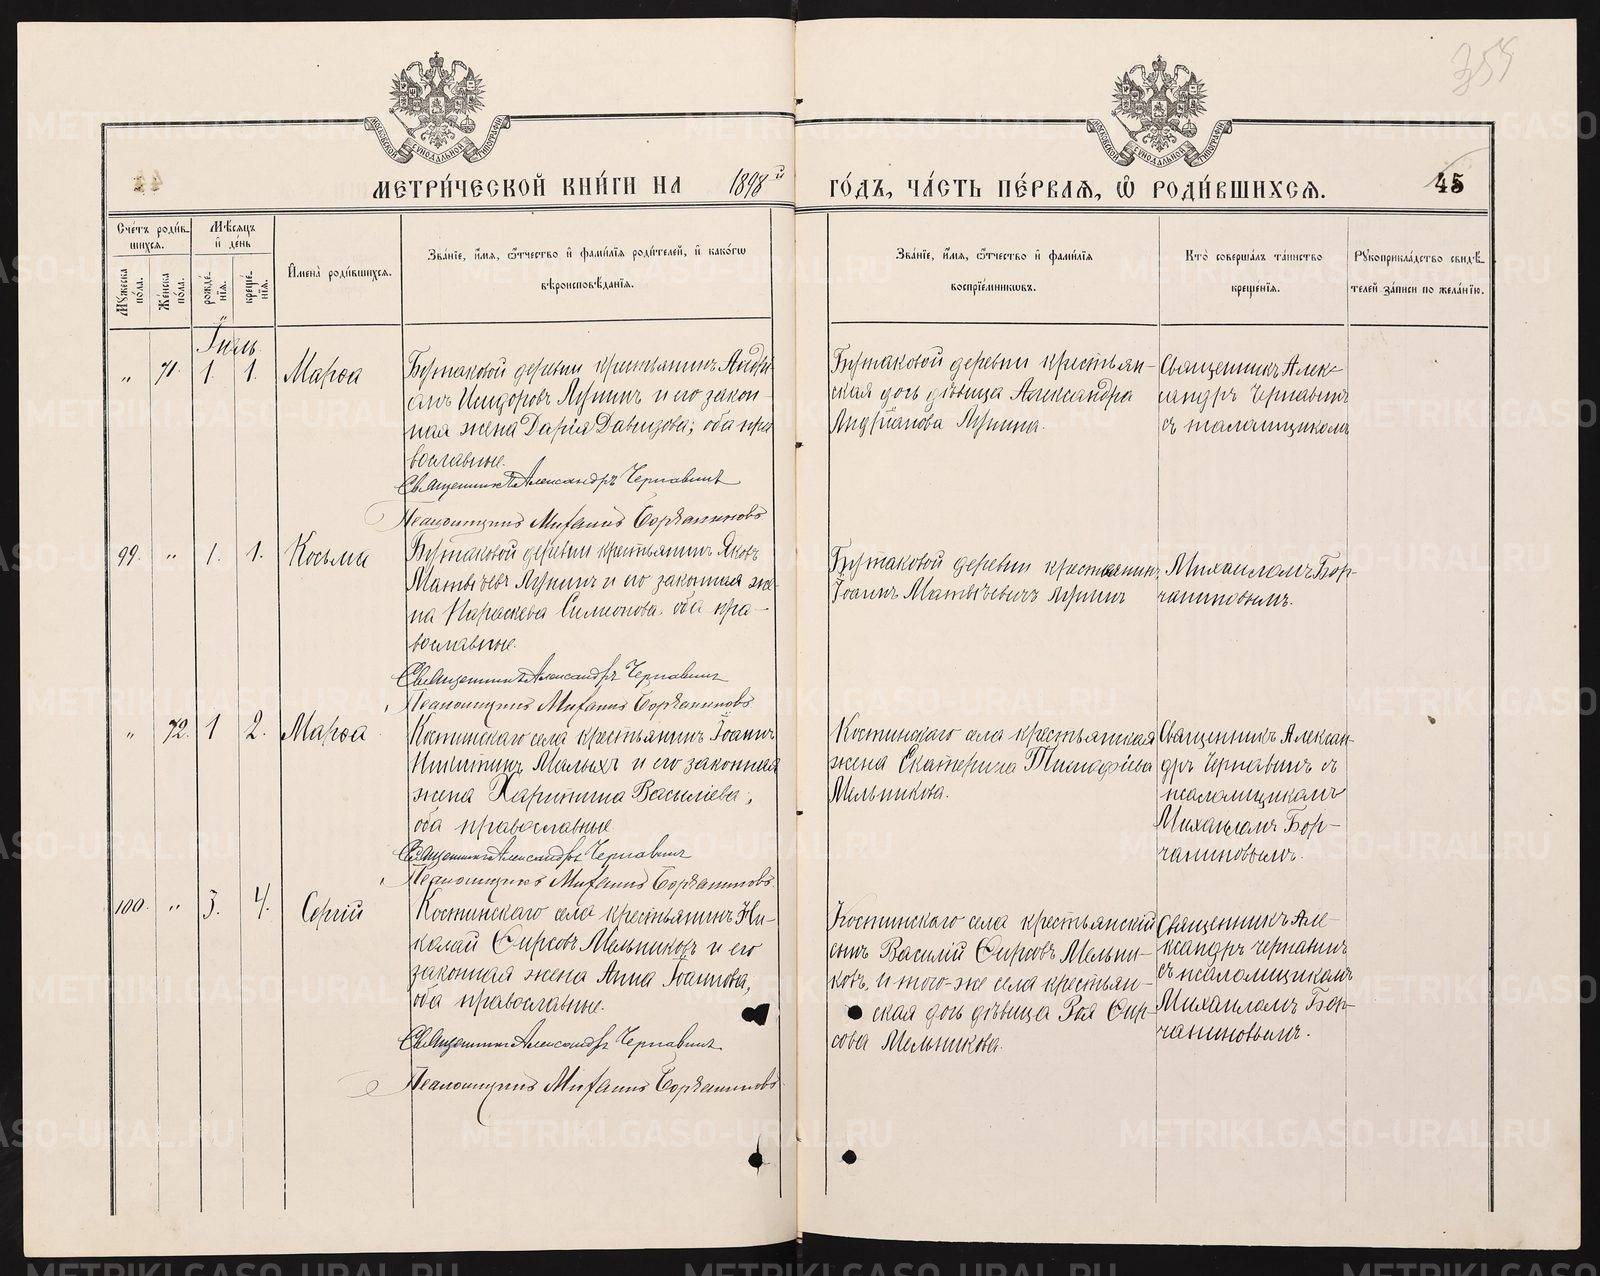 359
МЕТРИ́ЧЕСКОЙ КНИ́ГИ НА 1898й ГО́ДЪ, ЧА́СТЬ ПЕ́РВАѦ, Ѡ҆ РОДИ́ВШИХСѦ.
45
Сче́тъ роди́в-
шихся.
Мѣ́сяцъ
и҆ де́нь
Мꙋ́жеска
по́ла.
Же́нска
по́ла.
рожде́-
нїя.
креще́-
нїя.
И҆мена̀ роди́вшихся.
Зва́нїе, и҆́мя, ѻ҆́тчество и҆ фами́лїя роди́телей, и҆ како́гѡ
вѣроисповѣ́данїя.
Зва́нїе, и҆́мя, ѻ҆́тчество и҆ фами́лїя
воспрїе́мникѡвъ.
Кто̀ соверша́лъ та́инство
креще́нїя.
Рꙋкоприкла́дство свидѣ́-
телей за́писи по жела́нїю.
Іюль
„ 71. 1. 1. Марѳа
Бутаковой деревни крестьянинъ Андрі-
анъ Исидоровъ Лунинъ и его закон-
ная жена Дарія Давидова; оба пра
вославные.
Священникъ Александръ Чернавинъ
Псаломщикъ Михаилъ Борчаниновъ
Бутаковой деревни крестьян-
ская дочь дѣвица Александра
Андріанова Лунина.
Священникъ Алек-
сандръ Чернавинъ
съ псаломщикомъ
99. „ 1. 1. Косьма
Бутаковой деревни крестьянинъ Яковъ
Матвѣевъ Лунинъ и его законная же-
на Параскева Симионова. оба пра-
вославные.
Священникъ Александръ Чернавинъ
Псаломщикъ Михаилъ Борчаниновъ
Бутаковой деревни крестьянинъ
Іоаннъ Матвѣевичъ Лунинъ
Михаиломъ Бор-
чаниновымъ.
„ 72. 1 2. Марѳа
Костинскаго села крестьянинъ Іоаннъ
Никитинъ Малыхъ и его законная
жена Харитина Василіева;
оба православные
Священникъ Александръ Чернавинъ
Псаломщикъ Михаилъ Борчаниновъ
Костинскаго села крестьянская
жена Екатерина Тимофіева
Мельникова.
Священникъ Алексан-
дръ Чернавинъ съ
псаломщикомъ
Михаиломъ Бор-
чаниновымъ.
100. „ 3. 4. Сергій
Костинскаго села крестьянинъ Ни-
колай Фирсовъ Мельниковъ и его
законная жена Анна Іоаннова,
оба православные.
Священникъ Александръ Чернавинъ
Псаломщикъ Михаилъ Борчаниновъ
Костинскаго села крестьянскій
сынъ Василій Фирсовъ Мельни-
ковъ, и того-же села крестьян-
ская дочь дѣвица Зоя Фир-
сова Мельникова.
Священникъ Але-
ксандръ Чернавинъ
съ псаломщикомъ
Михаиломъ Бор-
чаниновымъ.
METRIKI.GASO-URAL.RU